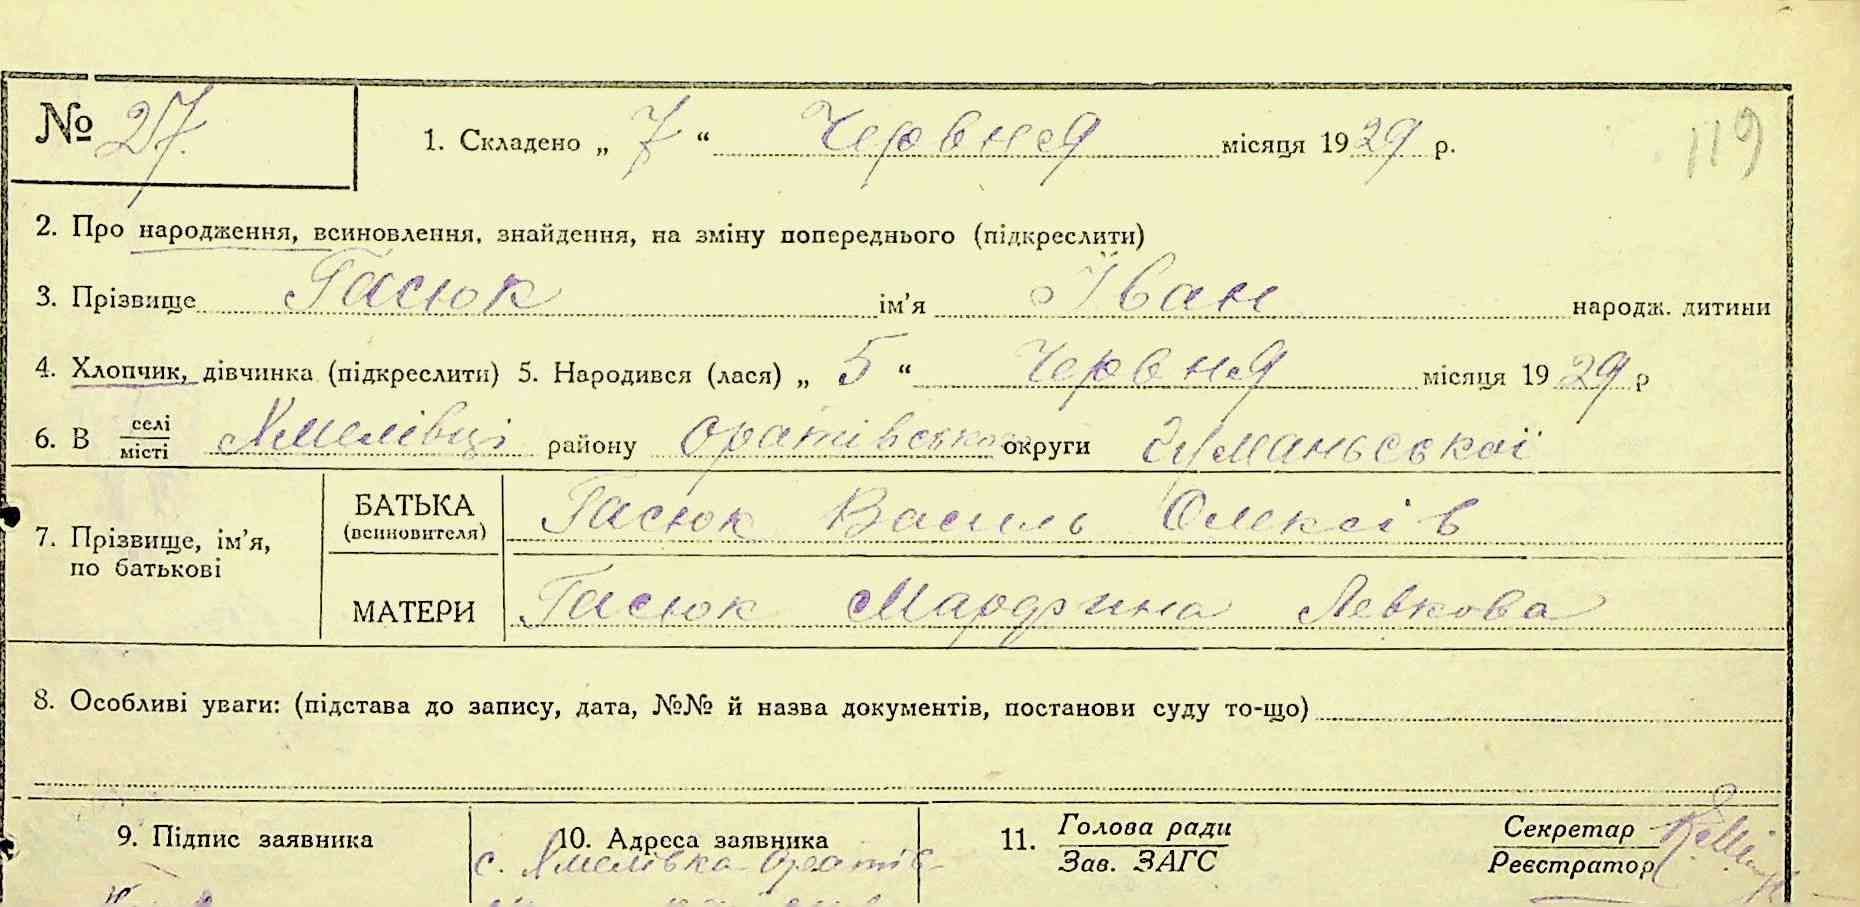 № 27.
1. Складено „ 7 “ Червня місяця 1929 р.
119
2. Про народження, всиновлення, знайдення, на зміну попереднього (підкреслити)
3. Прізвище Гасюк ім’я Іван народж. дитини
4. Хлопчик, дівчинка (підкреслити) 5. Народився (лася) „ 5 “ Червня місяця 1929 р
6. В селі
місті Хмелівці району Оратівсько округи Гуманьської
БАТЬКА
(всиновителя)
Гасюк Василь Олексів
7. Прізвище, ім’я,
по батькові
МАТЕРИ Гасюк Марфина Левкова
8. Особливі уваги: (підстава до запису, дата, №№ й назва документів, постанови суду то-що)
9. Підпис заявника
10. Адреса заявника
с. Хмелівка Оратів-
11. Голова ради
Зав. ЗАГС
Секретар
Реєстратор